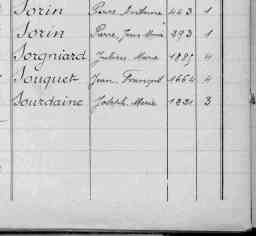 Sorin Pierre Antoine 443 1
Sorin Pierre, Jean Marie 293 1
Sorgniard Julien Marie 1885 4
Souquet Jean François 1664 4
Sourdaine Joseph Marie 1231 3